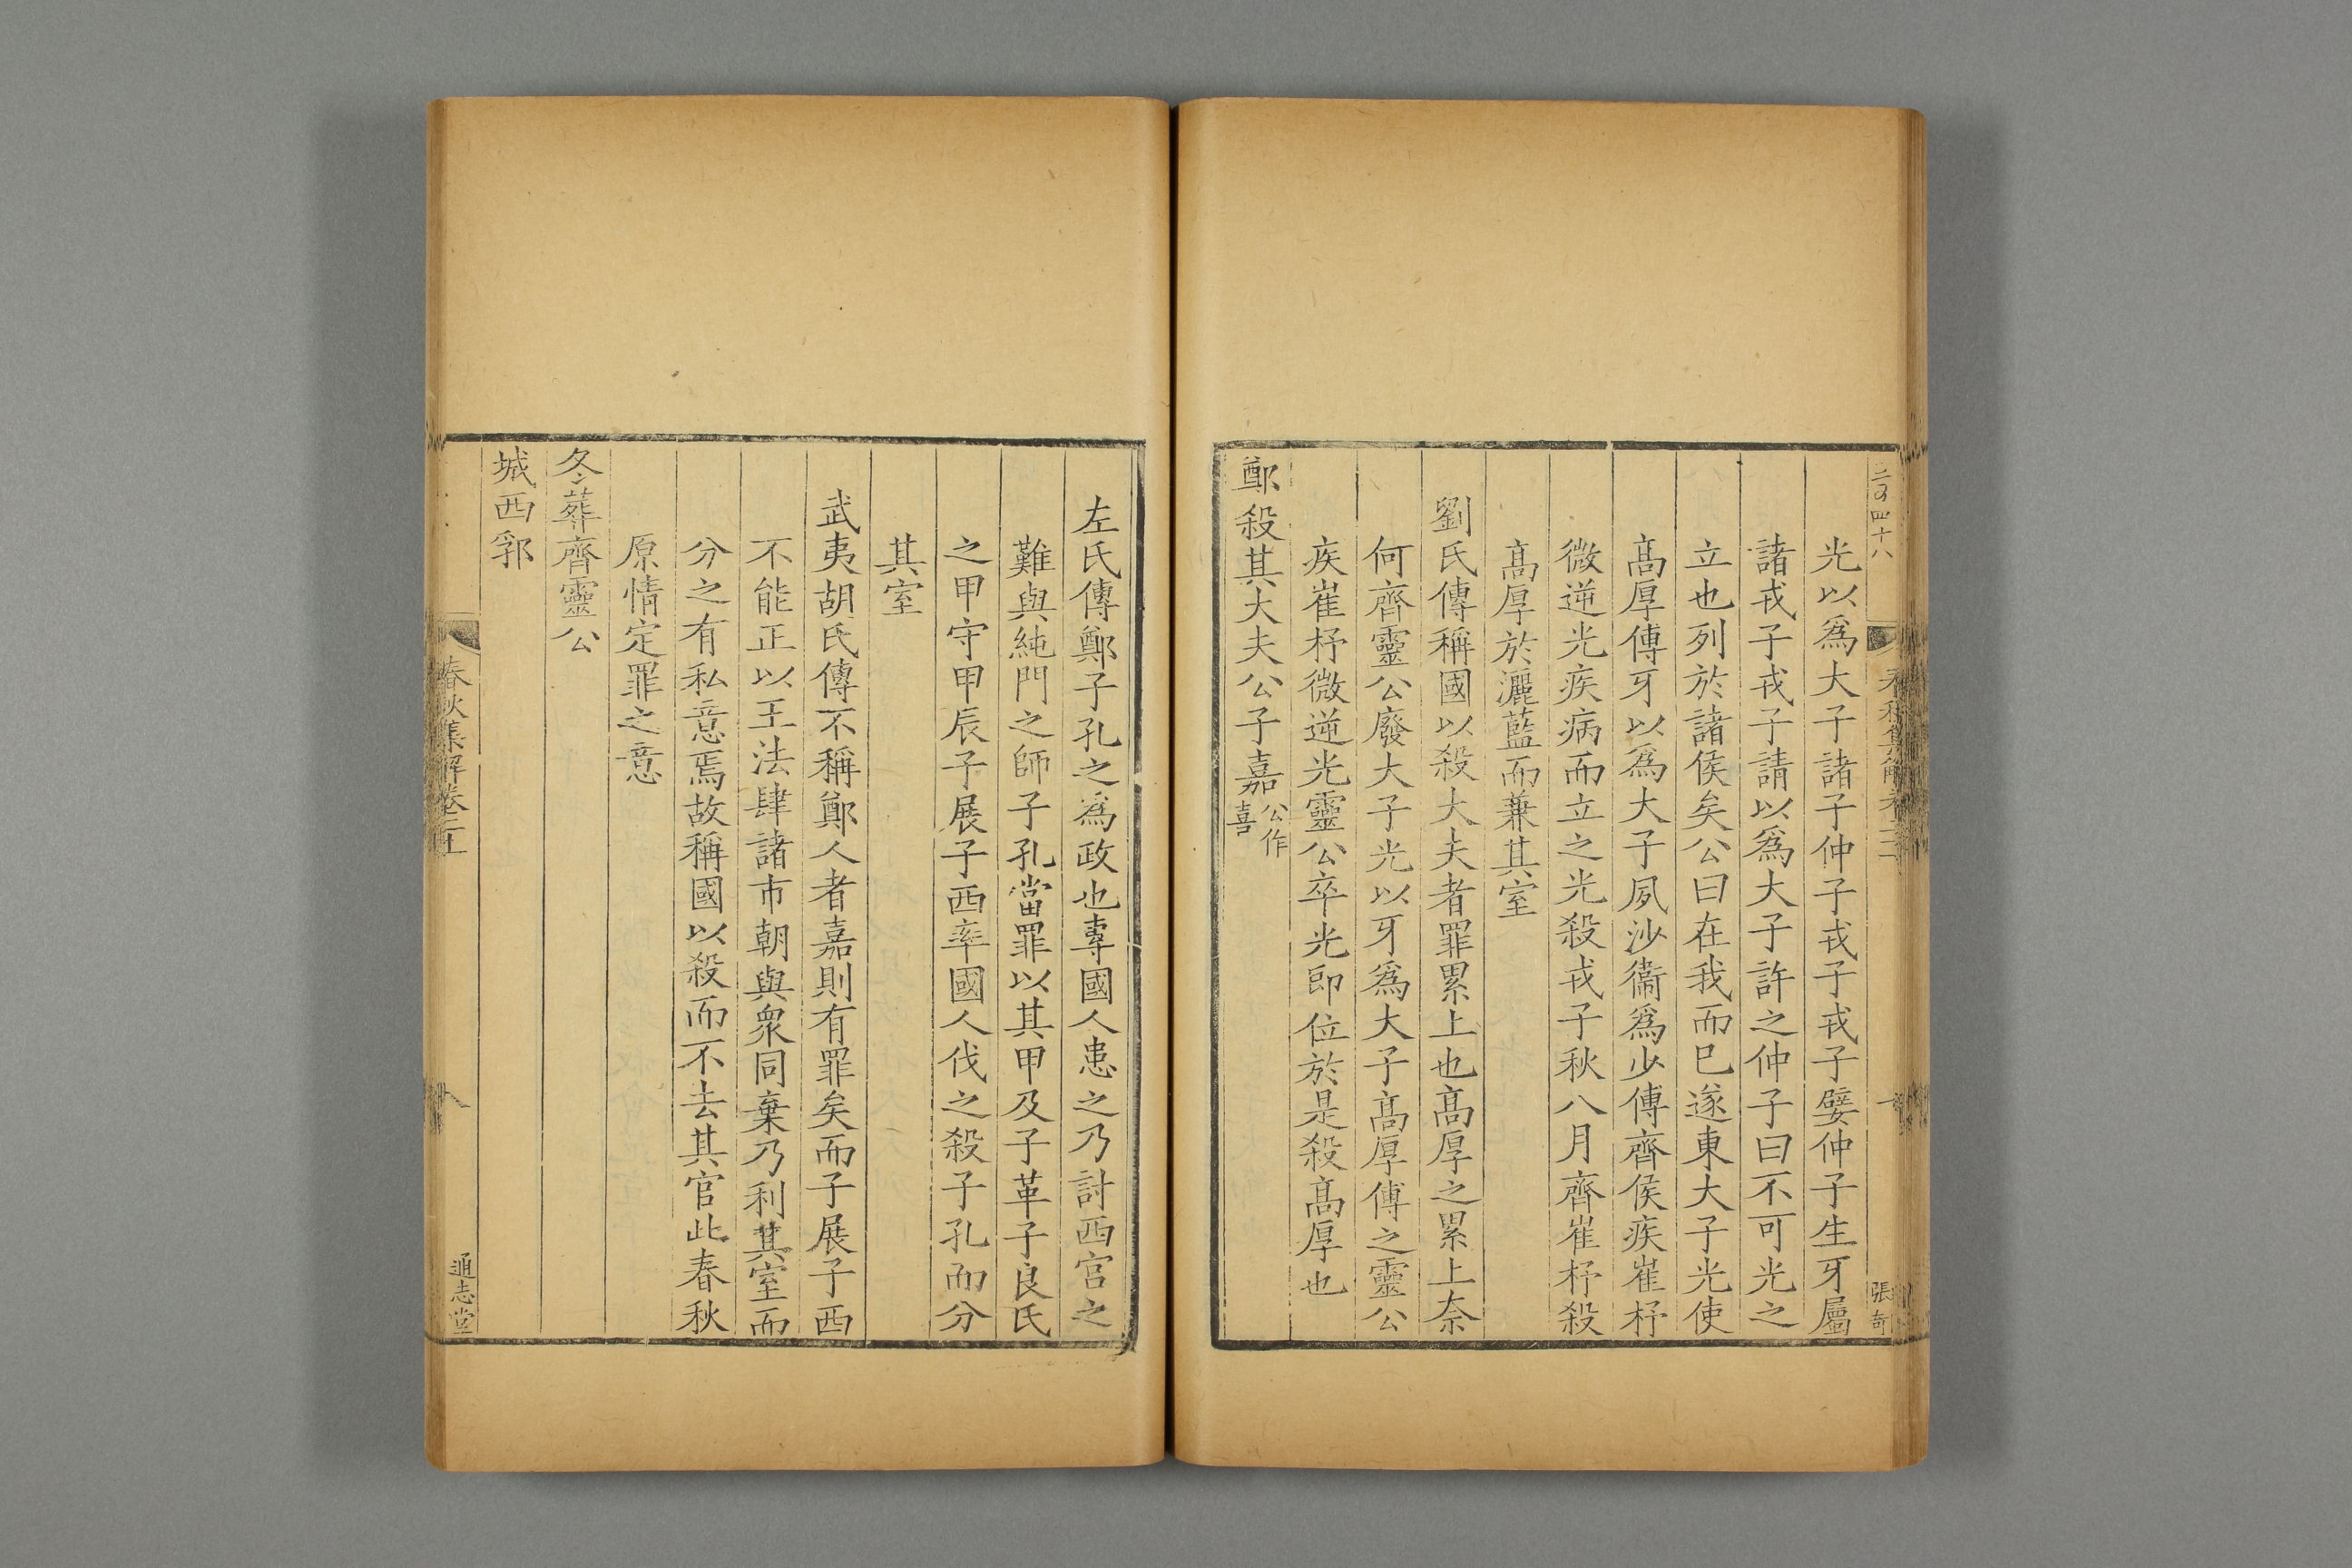 光以爲大子諸子仲子戎子戎子嬖仲子生牙屬
諸戎子戎子請以爲大子許之仲子曰不可光之
立也列於諸侯矣公曰在我而巳遂東大子光使
髙厚傅牙以爲大子夙沙衞爲少傅齊侯疾崔杼
微逆光疾病而立之光殺戎子秋八月齊崔杼殺
髙厚於灑藍而兼其室
劉氏傳稱國以殺大夫者罪累上也髙厚之累上奈
何齊靈公廢大子光以牙爲大子髙厚傅之靈公
疾崔杼微逆光靈公卒光即位於是殺髙厚也
鄭殺其大夫公子嘉公作喜
左氏傳鄭子孔之爲政也專國人患之乃討西宫之
難與純門之師子孔當罪以其甲及子革子良氏
之甲守甲辰子展子西率國人伐之殺子孔而分
其室
武夷胡氏傳不稱鄭人者嘉則有罪矣而子展子西
不能正以王法肆諸市朝與衆同棄乃利其室而
分之有私意焉故稱國以殺而不去其官此春秋
原情定罪之意
冬葬齊靈公
城西郛
春秋集解卷二
八
通志堂
張奇